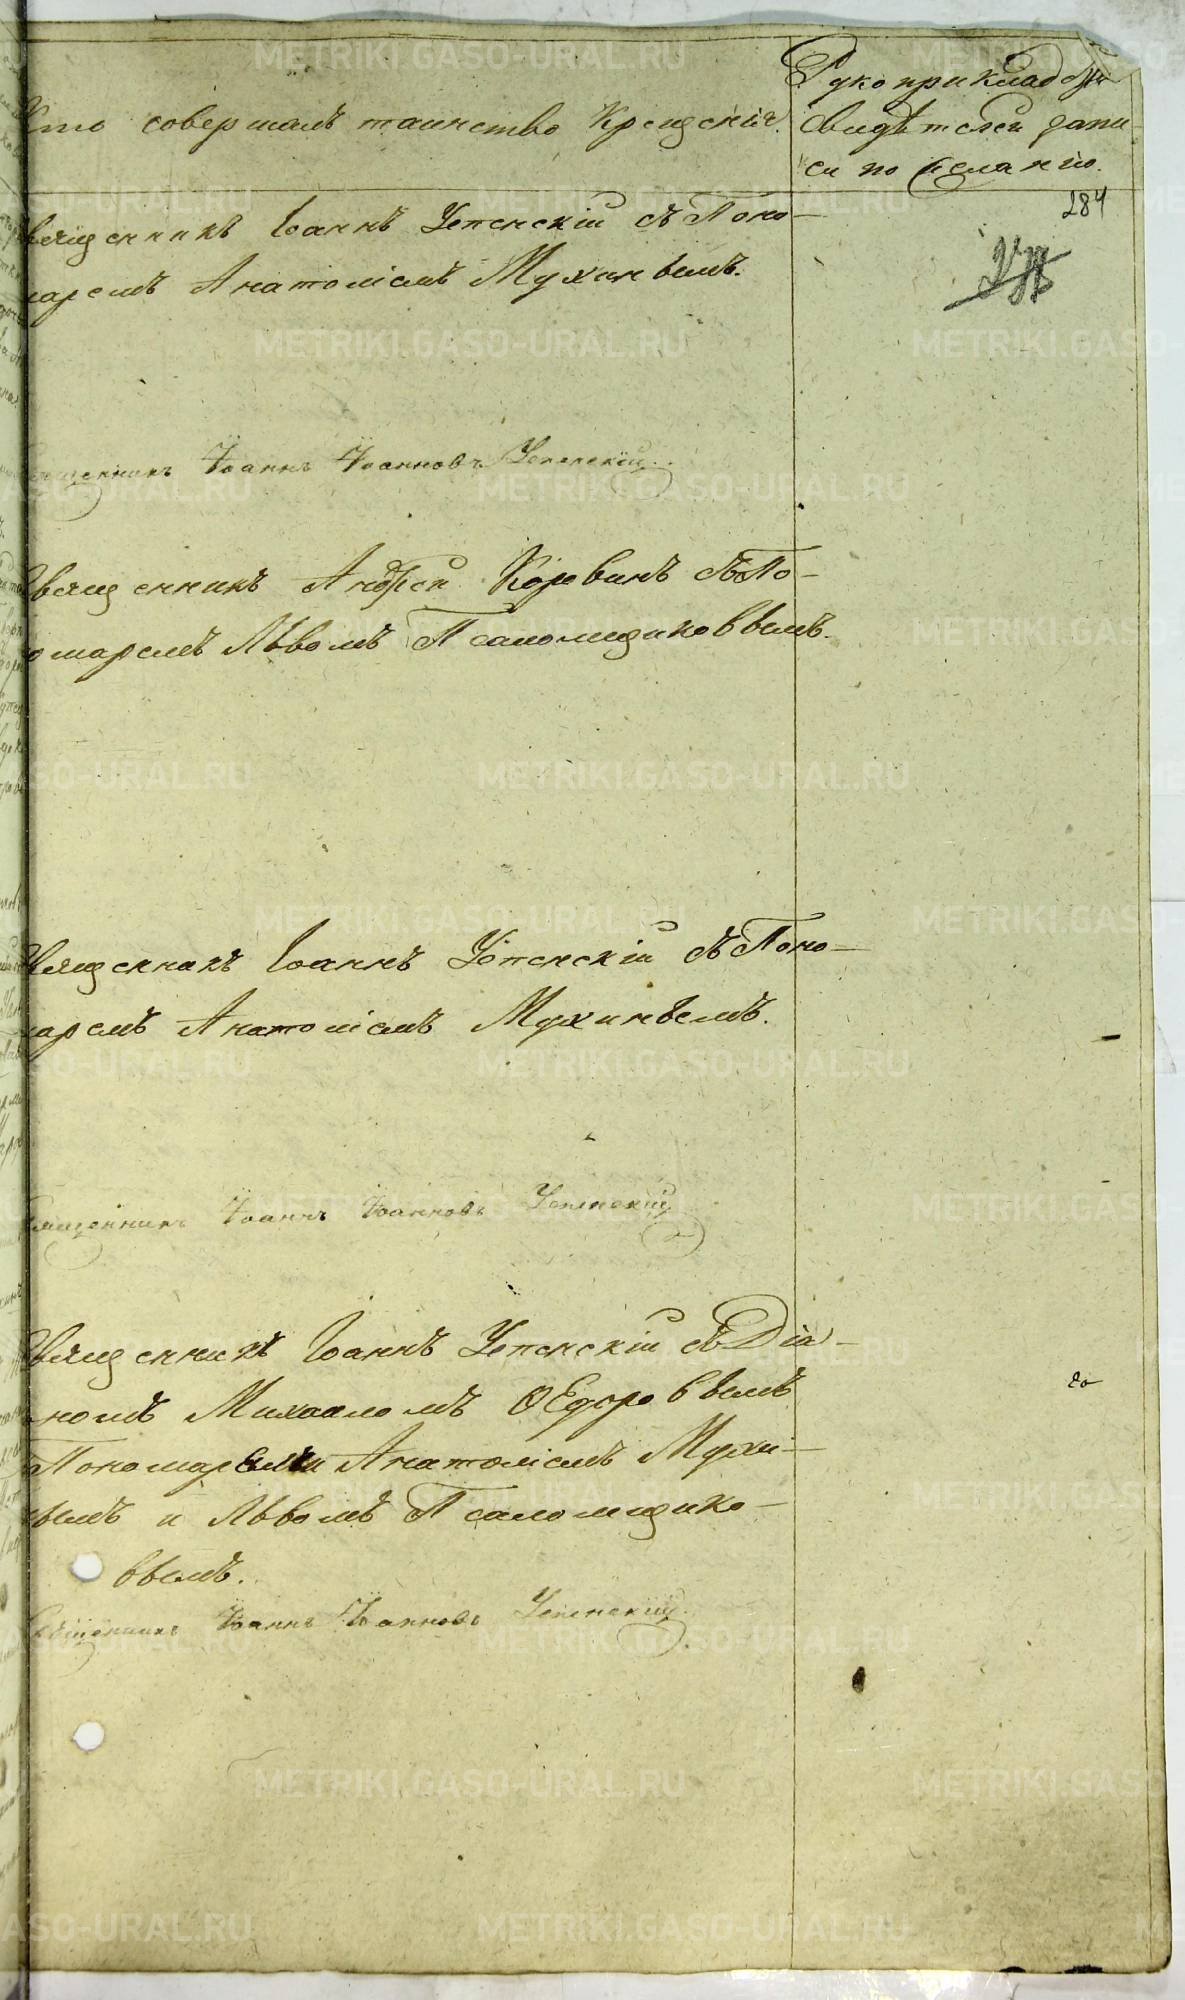 Кто совершалъ таинство Крещенія.
Рукоприкладство
свидѣтелей запи-
си по желанію.
284
Священникъ Іоаннъ Успенскій съ Поно-
маремъ Анатоліемъ Мухинымъ.
Священникъ Іоаннъ Іоанновъ Успенскій
Священникъ Андрей Коровинъ съ По-
номаремъ Львомъ Псаломщиковымъ.
Священникъ Іоаннъ Успенскій съ Поно-
маремъ Анатоліемъ Мухинымъ.
Священникъ Іоаннъ Іоанновъ Успенскій
Священникъ Іоаннъ Успенскій съ Діа-
кономъ Михаиломъ Ѳедоровымъ
Пономарями Анатоліемъ Мухи-
нымъ и Львомъ Псаломщико-
вымъ.
Священникъ Іоаннъ Іоанновъ Успенскій
METRIKI.GASO-URAL.RU